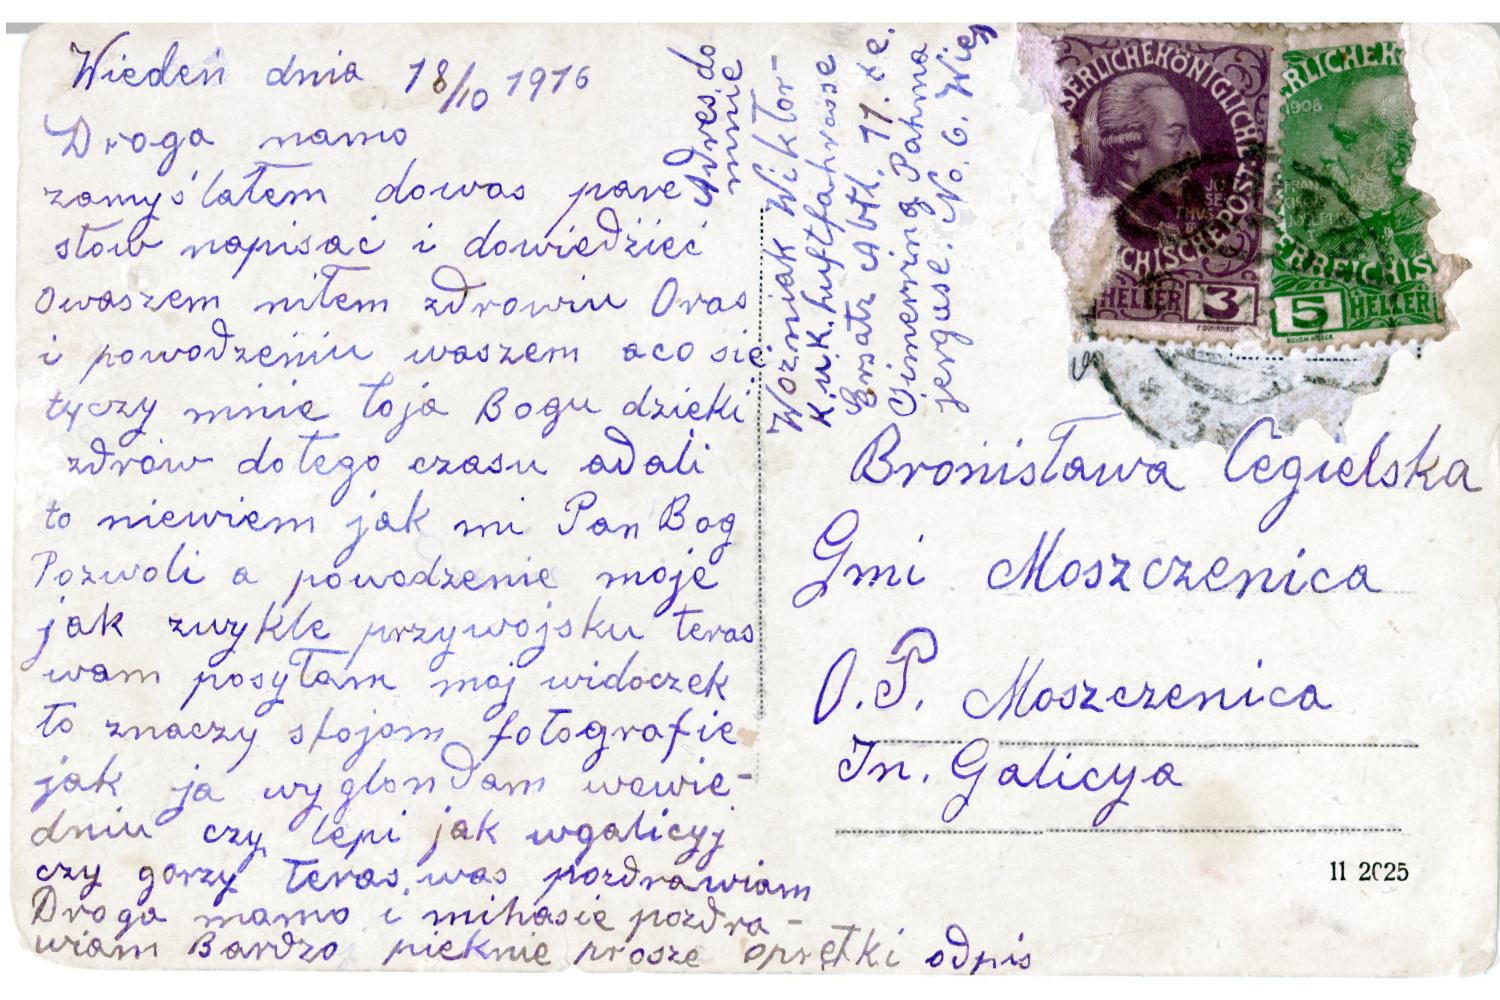 Wiedeń dnia 18/10 1916
Droga mamo
zamyślałem dowas pare
słow napisać i dowiedźieć
owaszem miłem zdrowiu Oras
i powodzeniu waszem aco sie
tyczy mnie toja Bogu dzieki
zdrów dotego czasu adali
to niewiem jak mi Pan Bog
Pozwoli a powodzenie moje
jak zwykle przywojsku teras
wam posyłam moj widoczek
to znaczy sfojom fotografie
jak ja wyglondam wewie-
dniu czy lepi jak wgalicyj
czy gorzy teras was pozdrawiam
Droga mamo i mihasie pozdra-
wiam Bardzo pieknie prosze oprętki odpis
Adres do
mnie
Woźniak Wiktor-
K.u.K. Luftfahrtruse
Ersatz Abtl. 11. Ke.
Simering
No. 6. Wię
KÖNIGLICHE
POST
HELLER 3
1908
5 HELLER
Bronisława Cegielska
Gmi Moszczenica
O.P. Moszczenica
In. Galicya
11 2025